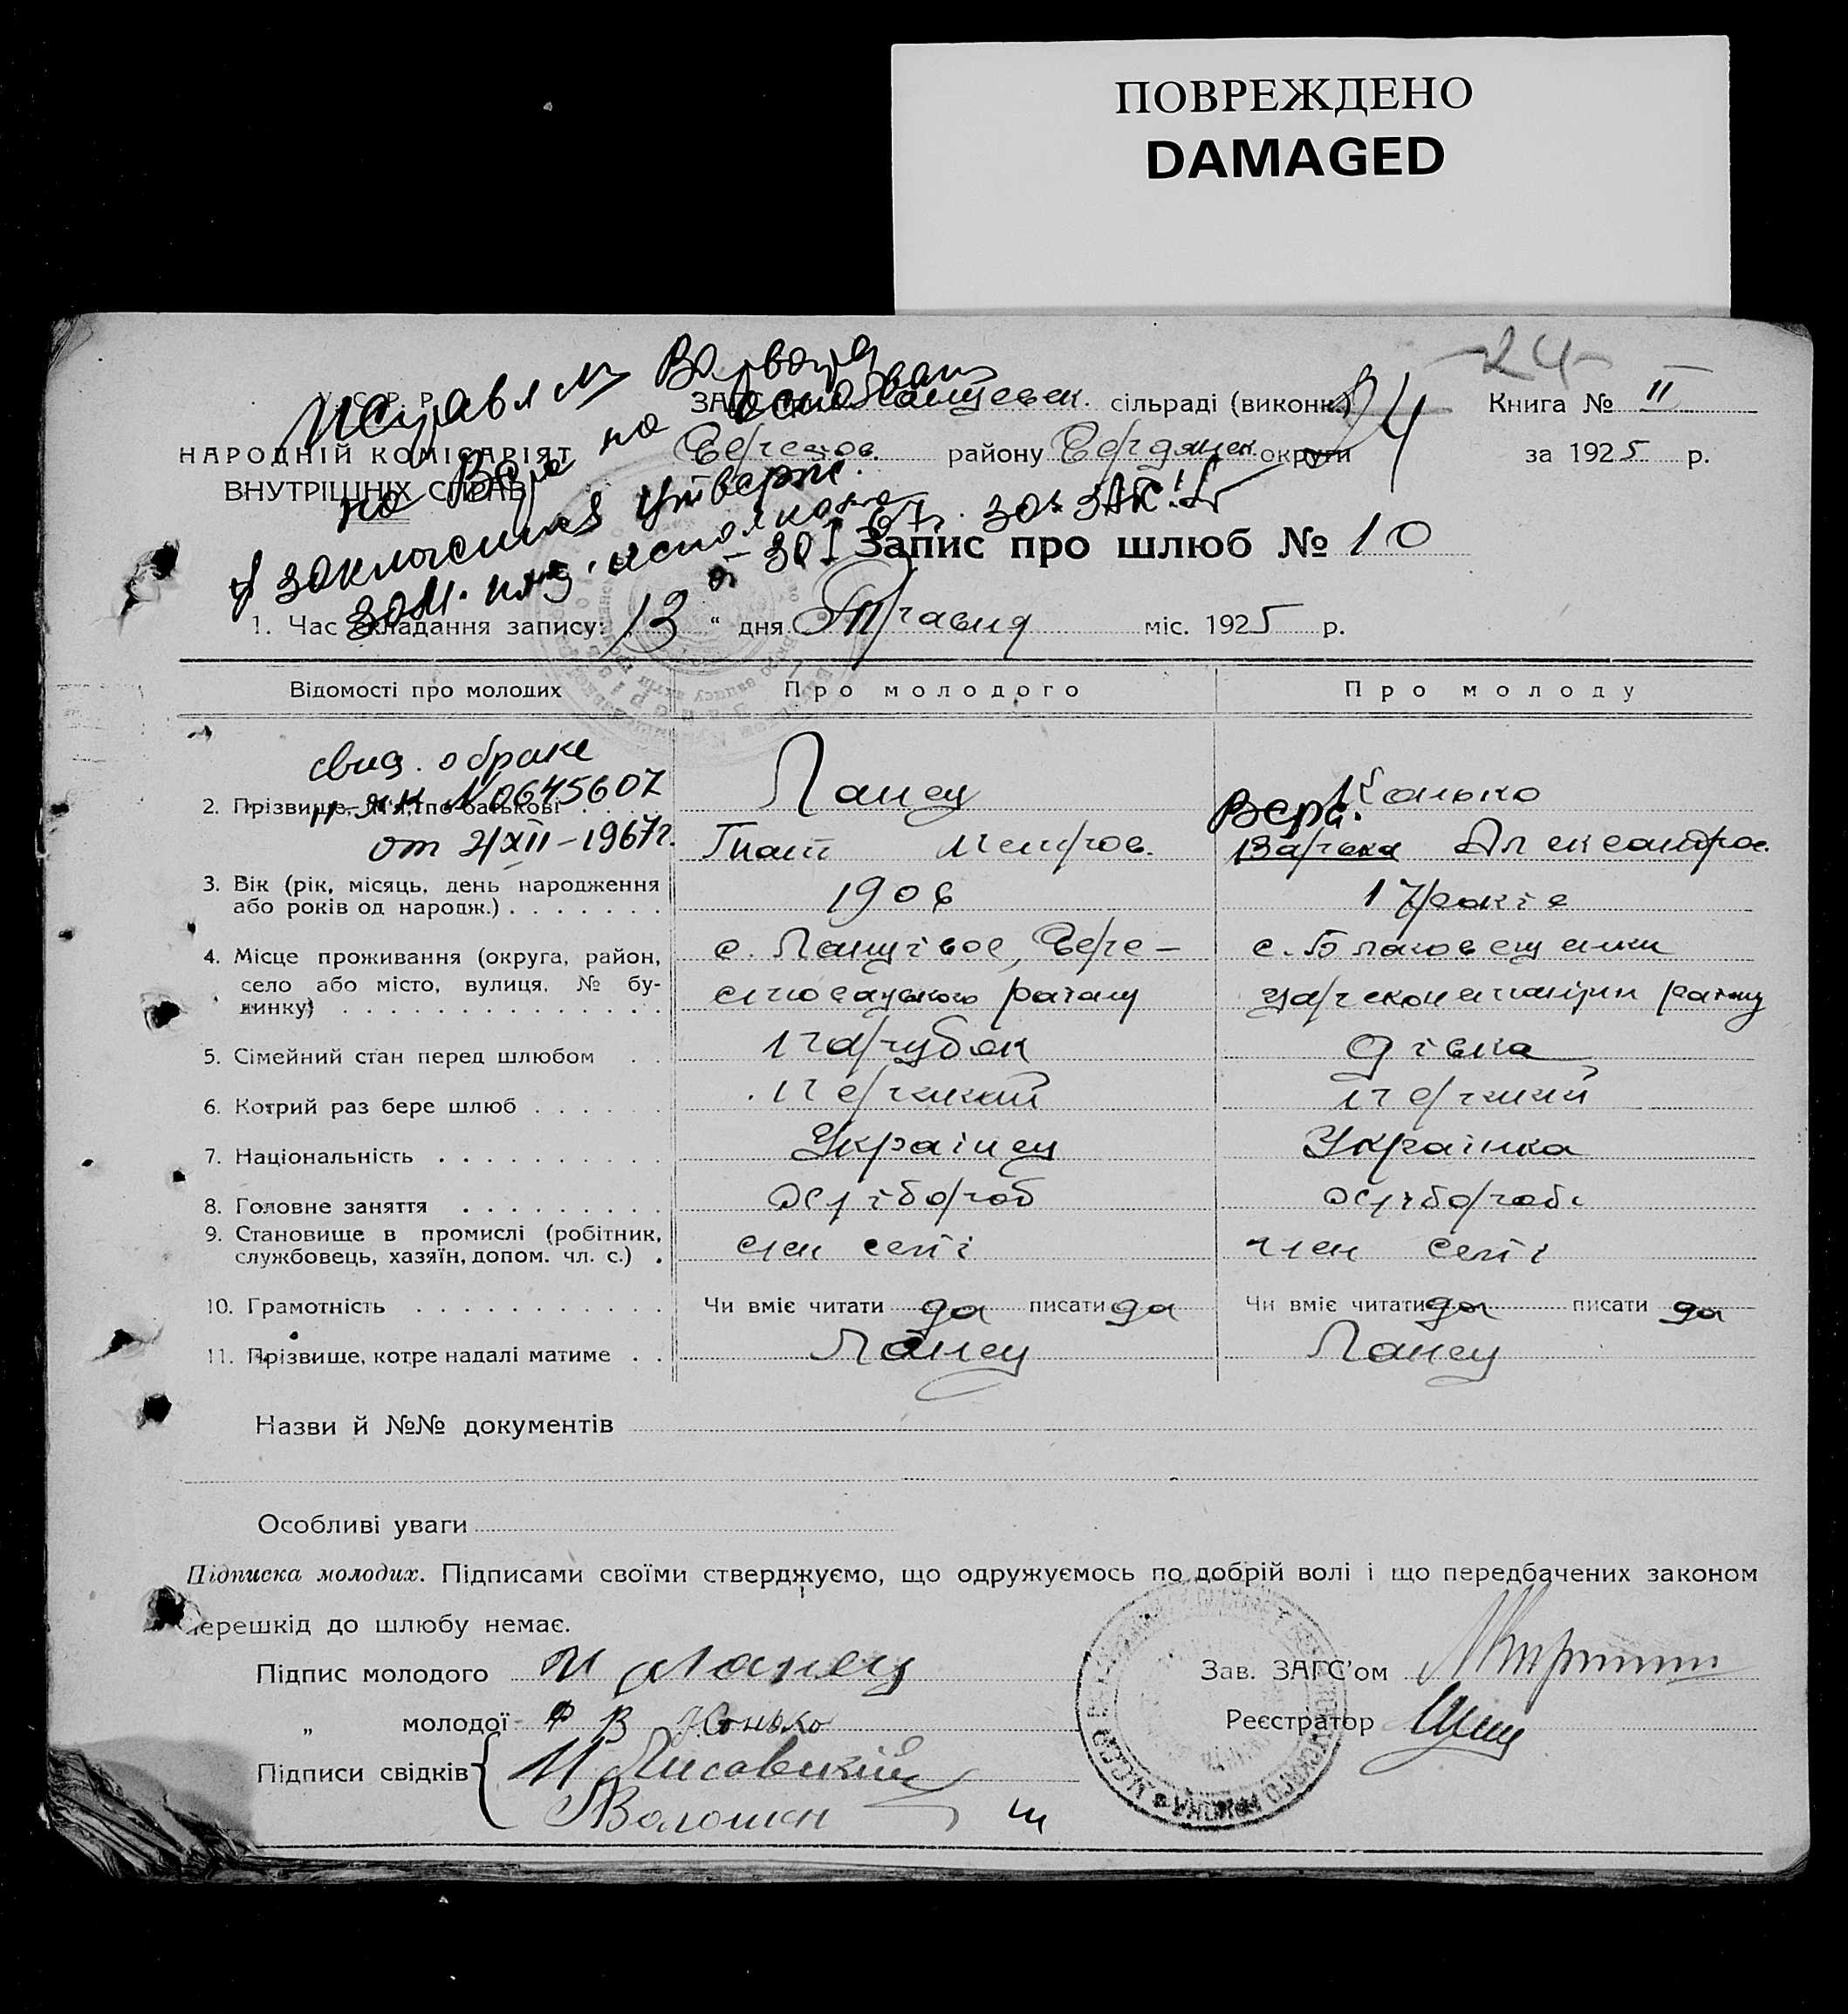 ПОВРЕЖДЕНО
DAMAGED
24
Исправлял Варвара
на Вера на основан
заключения утверж.
зам. исполкома
от 30/I 67г.
У. С. Р. Р.
НАРОДНІЙ КОМІСАРІЯТ
ВНУТРІШНІХ СПРАВ
ЗАГС сільраді (виконк.) Книга № II
району округи за 1925 р.
Запис про шлюб № 10
1. Час складання запису: „13“ дня Травня міс. 1925 р.
Відомості про молодих Про молодого Про молоду
свид. о браке
№ 0645607
от 2/XII-1967г.
2. Прізвище, ім'я, по батькові Ланец Конько
Гнат Петров. Варвка Александров.
Вера.
3. Вік (рік, місяць, день народження
або років од народж.) 1906 17 років
4. Місце проживання (округа, район,
село або місто, вулиця, № бу-
динку)
району
району
5. Сімейний стан перед шлюбом парубок дівка
6. Котрий раз бере шлюб перший перший
7. Національність Українец Українка
8. Головне заняття хлібороб хлібороб
9. Становище в промислі (робітник,
службовець, хазяїн, допом. чл. с.) член семї член семї
10. Грамотність Чи вміє читати да писати да Чи вміє читати да писати да
11. Прізвище, котре надалі матиме Ланец Ланец
Назви й №№ документів
Особливі уваги
Підписка молодих. Підписами своїми стверджуємо, що одружуємось по добрій волі і що передбачених законом
перешкід до шлюбу немає.
Підпис молодого И Ланец Зав. ЗАГС'ом
„ молодої В Конько Реєстратор
Підписи свідків И Лисавский
Волошин